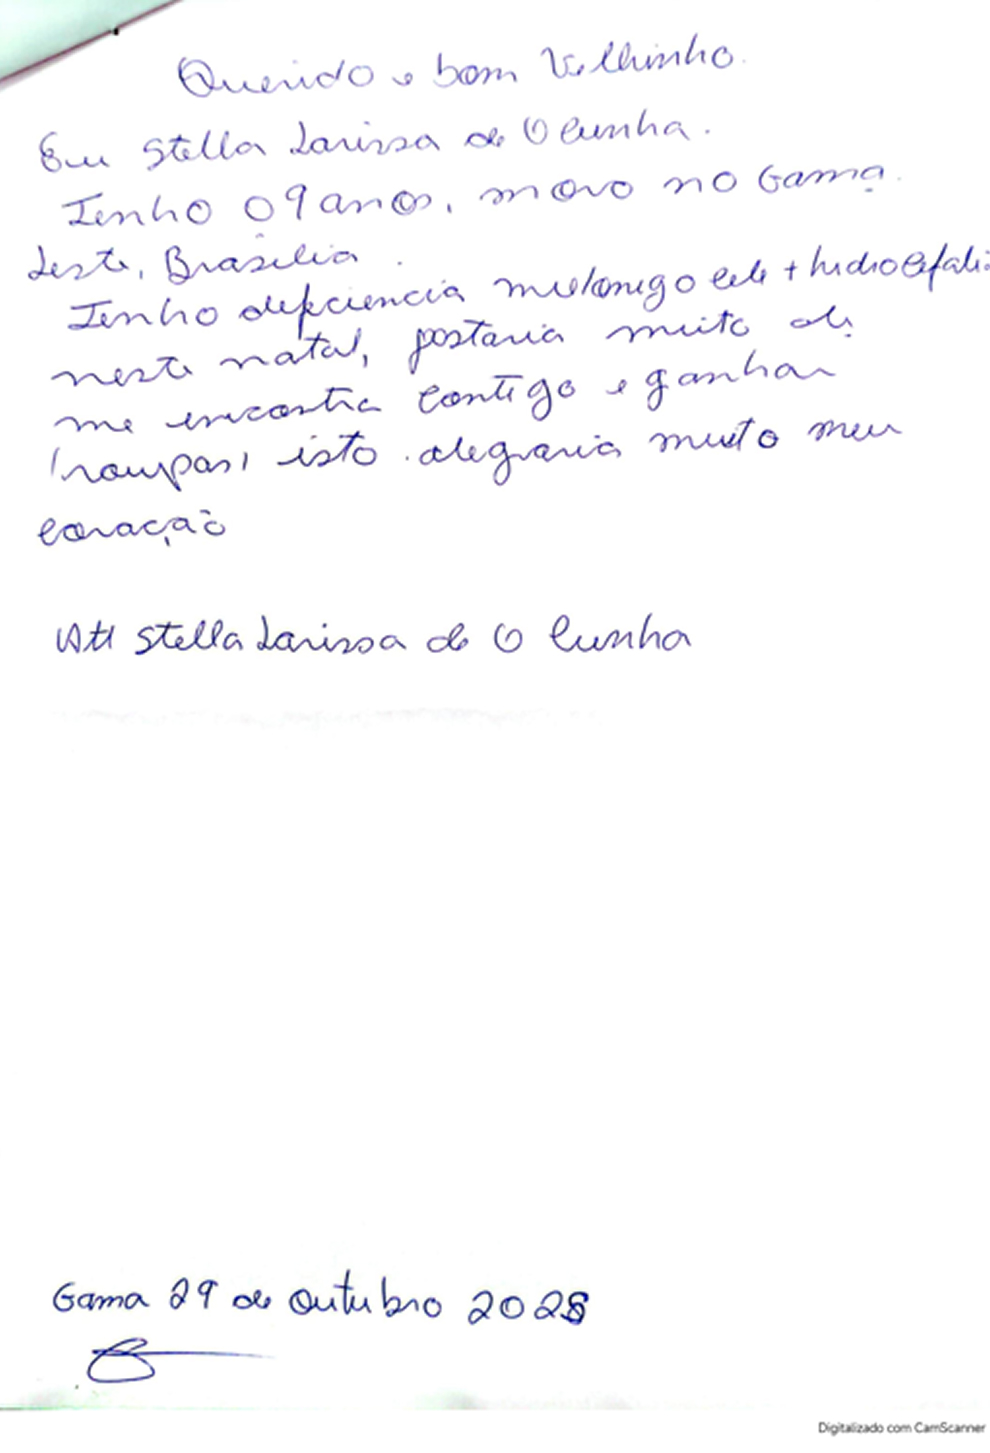 Querido e bom Velhinho.
Eu Stella Larissa de O Cunha.
Tenho 09 anos, moro no Gama
Leste, Brasilia.
Tenho defciencia mielomigo cele + hidrocefali
neste natal, gostaria muito de
me encontra contigo e ganhar
(roupas) isto alegraria muito meu
coração
Att Stella Larissa de O Cunha
Gama 29 de outubro 2025
Digitalizado com CamScanner